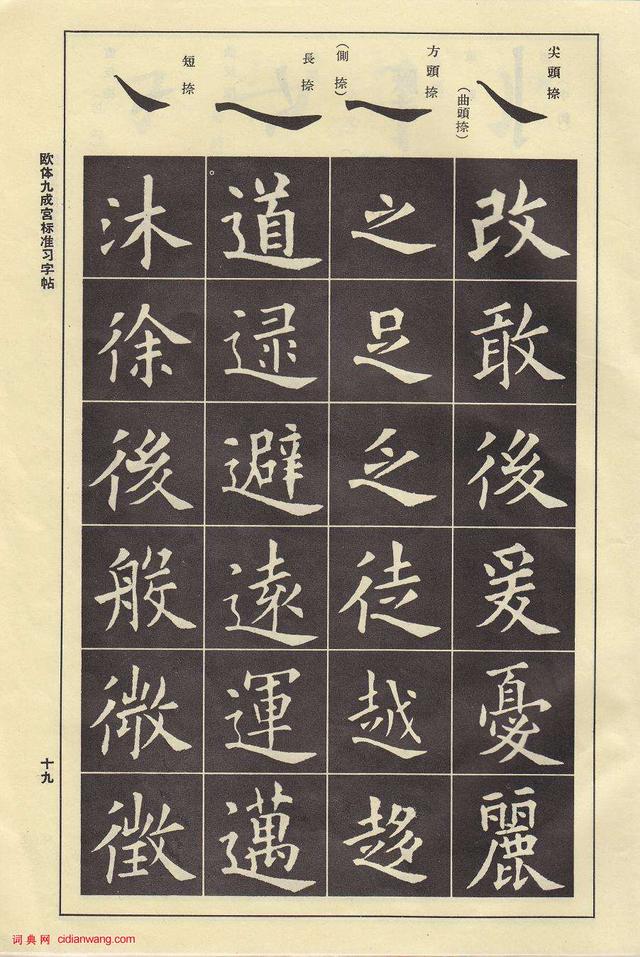 尖頭捺
(曲頭捺)
方頭捺
(側捺)
長捺
短捺
改敢後爰憂麗
之足乏徒越趍
道逮避遠運邁
沐徐後般微徵
欧体九成宫标准习字帖
十九
词典网 cidianwang.com